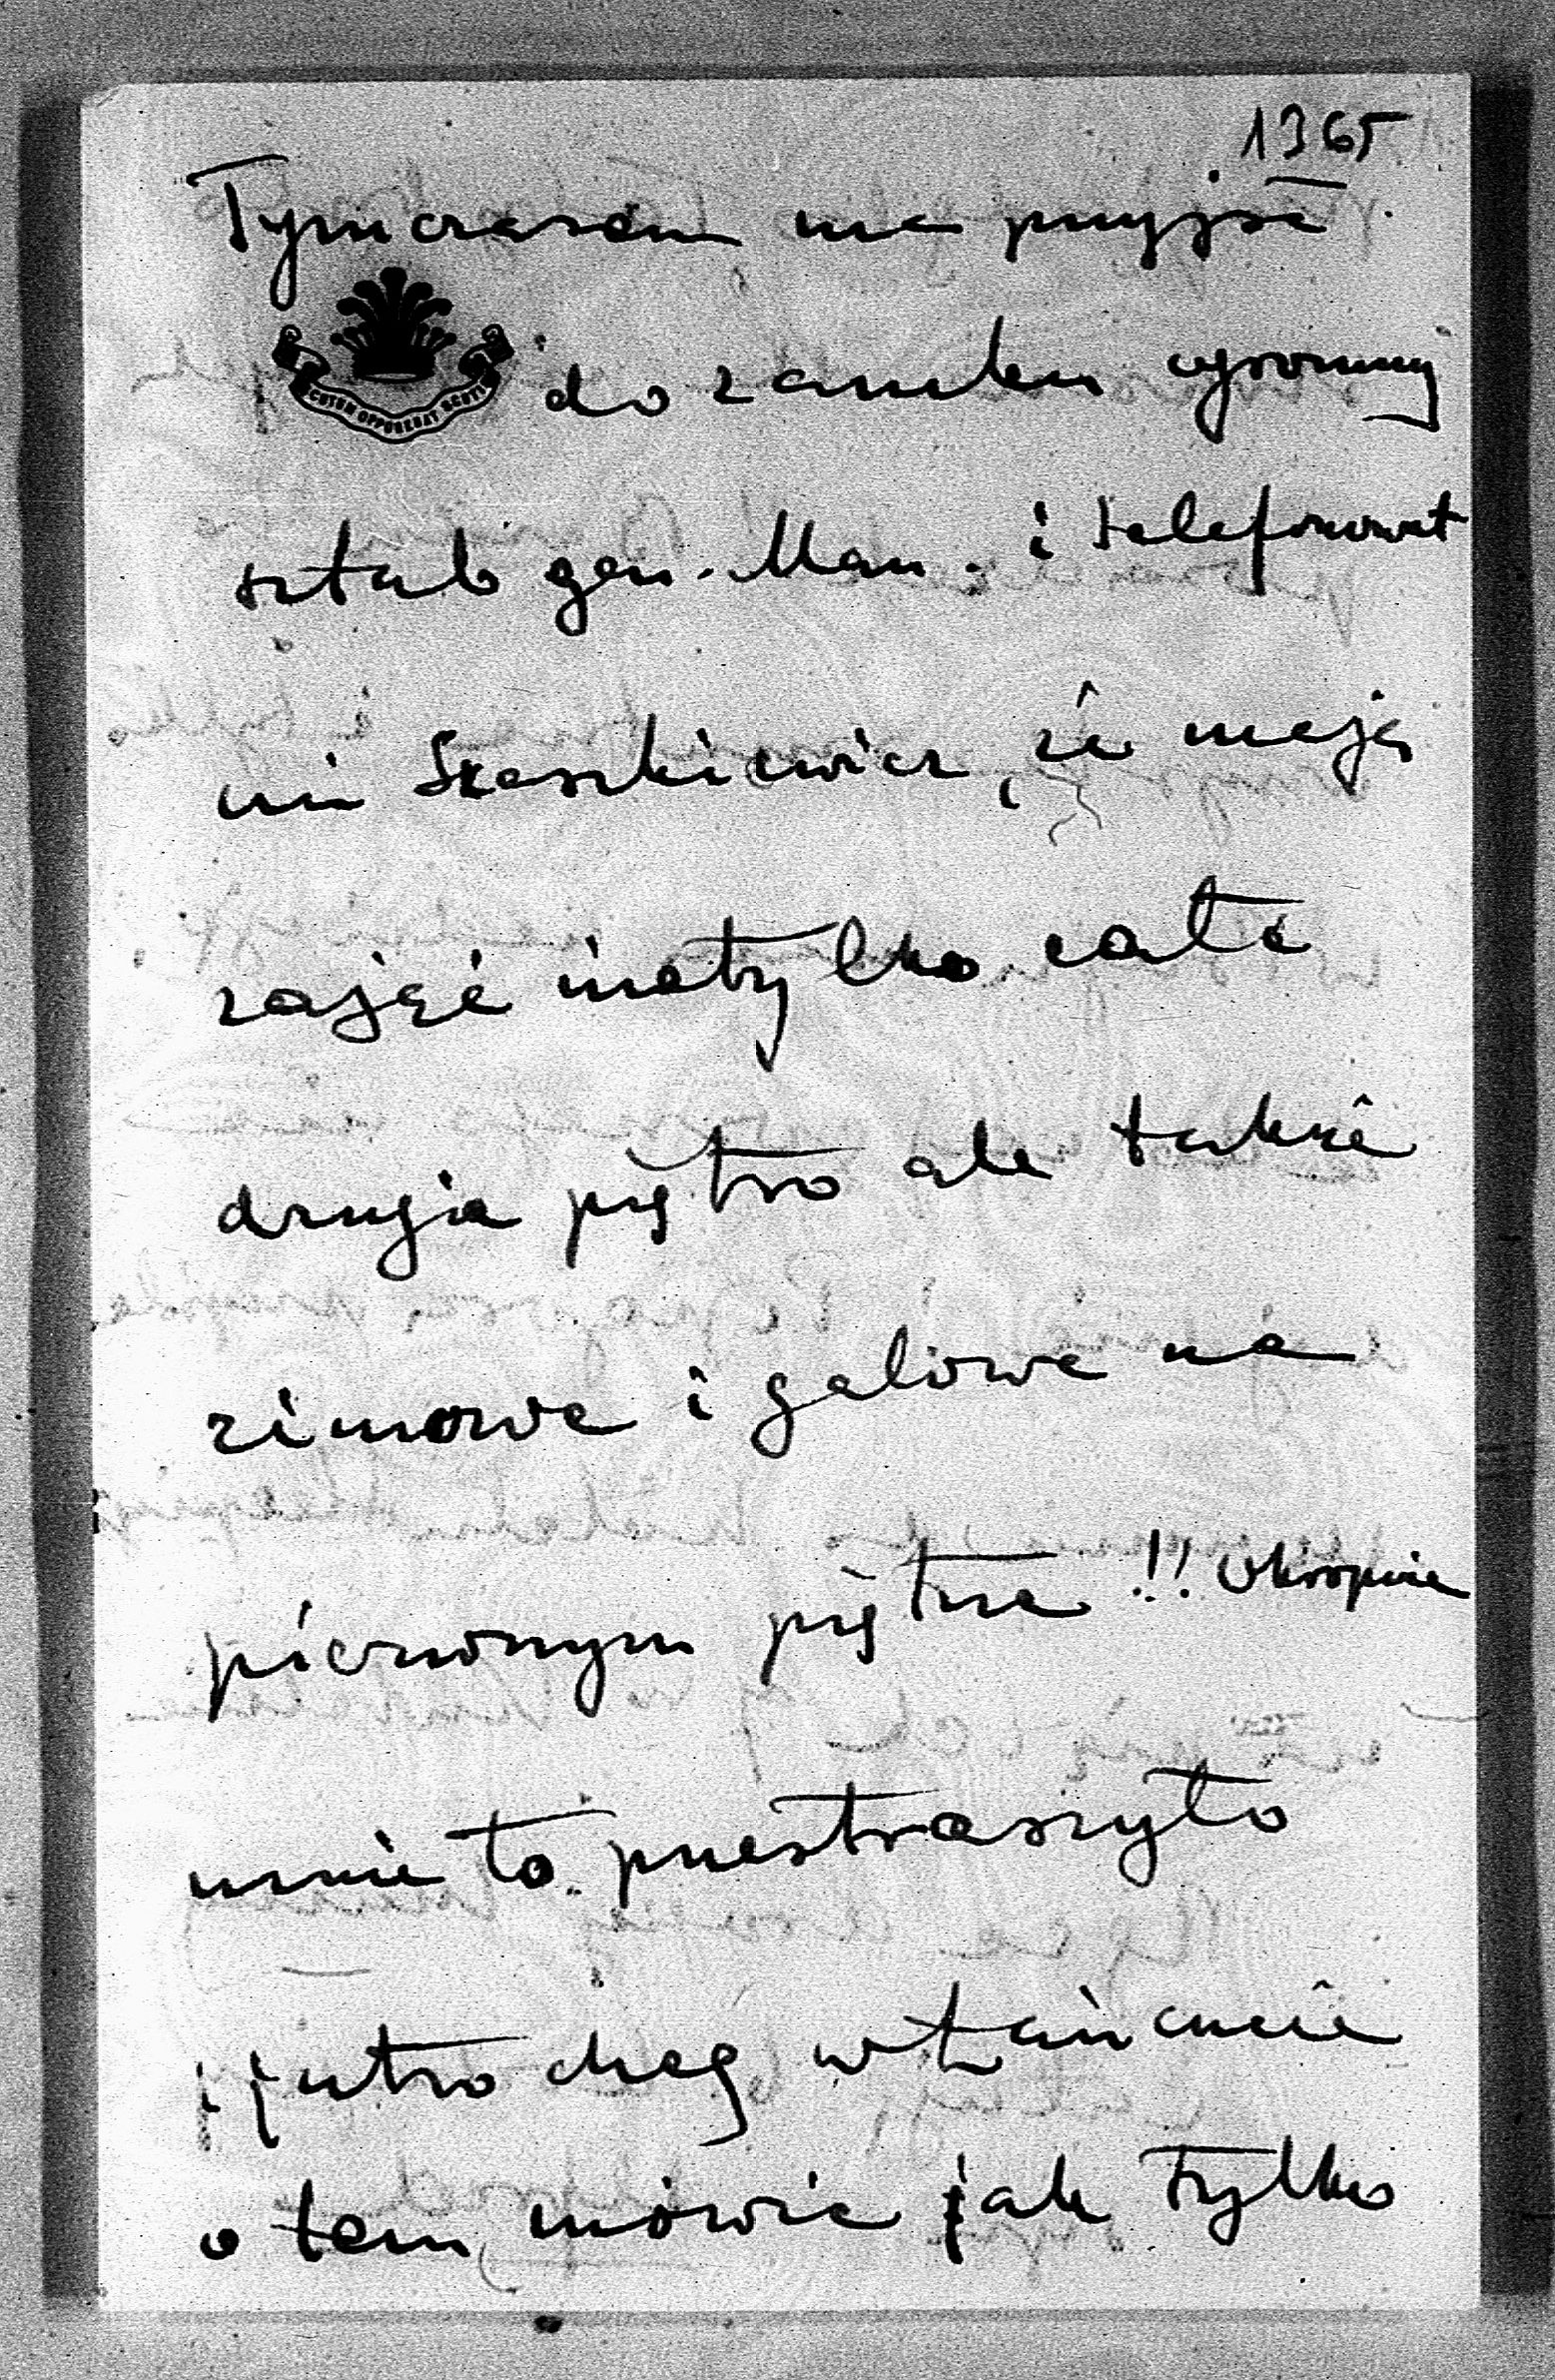 1365
Tymczasem ma przyjść
CUTUM OPPONEBAT SCUTO
do zamku ogromny
sztab gen. Man. i telefonował
mi Szaszkiewicz, że mają
zająć nietylko całe
drugie piętro ale także
zimowe i galowe na
pierwszym piętrze!! Okropnie
mnie to przestraszyło
i jutro chcę w Łańcucie
o tem mówić jak tylko